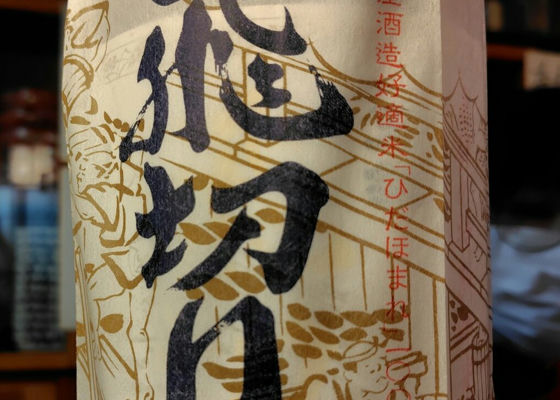 酒造好適米「ひだほまれ」100
飛切り